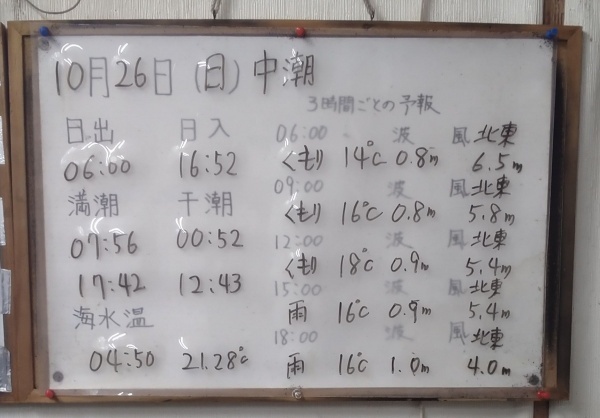 10月26日(日)中潮
3時間ごとの予報
日出 日入
06:00 16:52
満潮 干潮
07:56 00:52
17:42 12:43
海水温
04:50 21.28℃
06:00 波 風 北東
くもり 14℃ 0.8m 6.5m
09:00 波 風 北東
くもり 16℃ 0.8m 5.8m
12:00 波 風 北東
くもり 18℃ 0.9m 5.4m
15:00 波 風 北東
雨 16℃ 0.9m 5.4m
18:00 波 風 北東
雨 16℃ 1.0m 4.0m